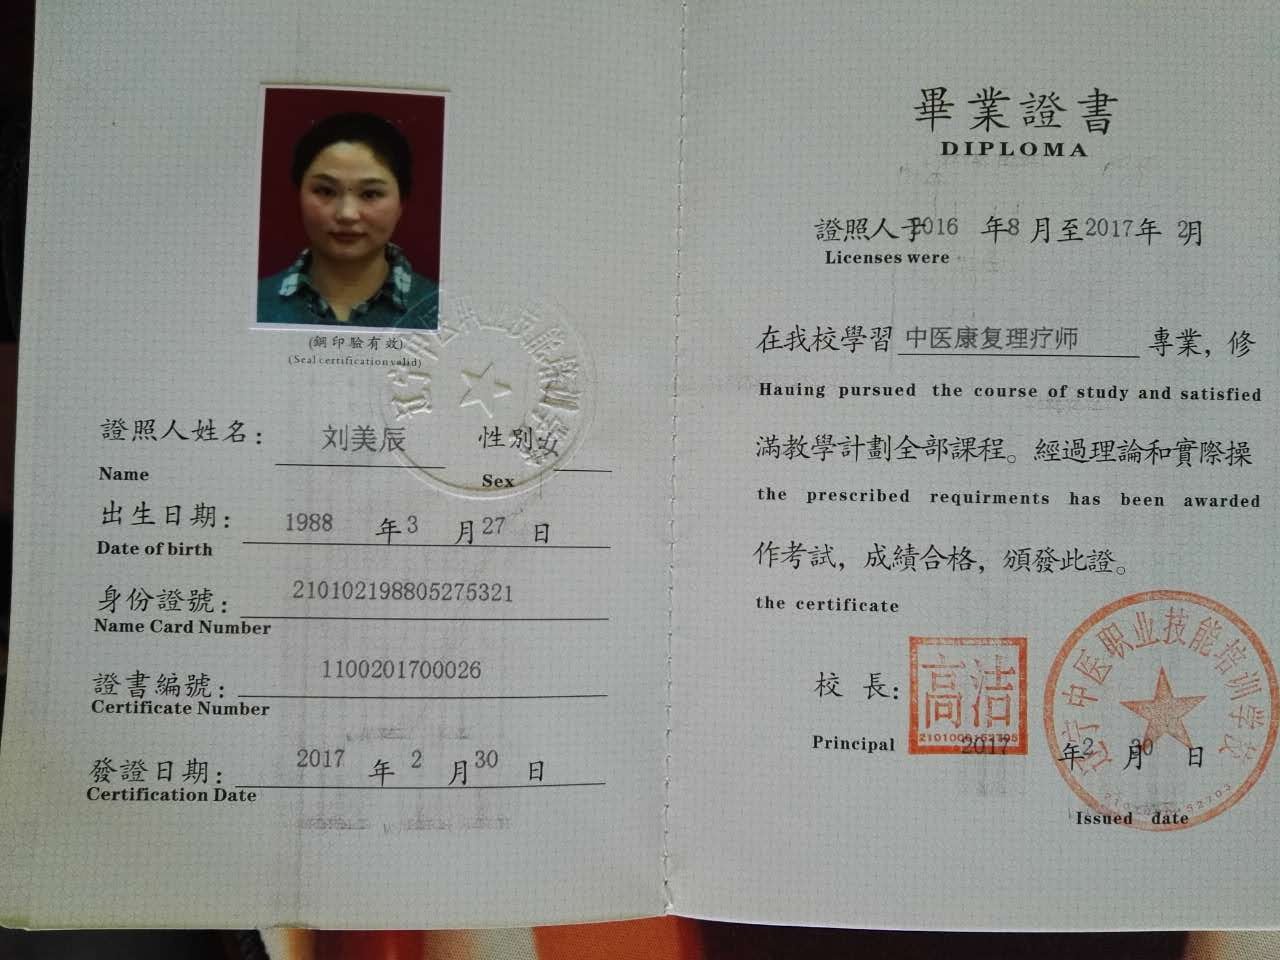 (鋼印驗有效)
(Seal certification valid)
證照人姓名: 刘美辰 性別 女
Name Sex
出生日期: 1988 年 3 月 27 日
Date of birth
身份證號: 210102198805275321
Name Card Number
證書編號: 1100201700026
Certificate Number
發證日期: 2017 年 2 月 30 日
Certification Date
畢業證書
DIPLOMA
證照人于2016 年8 月至2017年 2月
Licenses were
在我校學習 中医康复理疗师 專業，修
Hauing pursued the course of study and satisfied
滿教學計劃全部課程。經過理論和實際操
the prescribed requirments has been awarded
作考試，成績合格，頒發此證。
the certificate
校 長: 高洁
Principal 2017 年2 月30 日
Issued date
辽宁中医职业技能培训学校